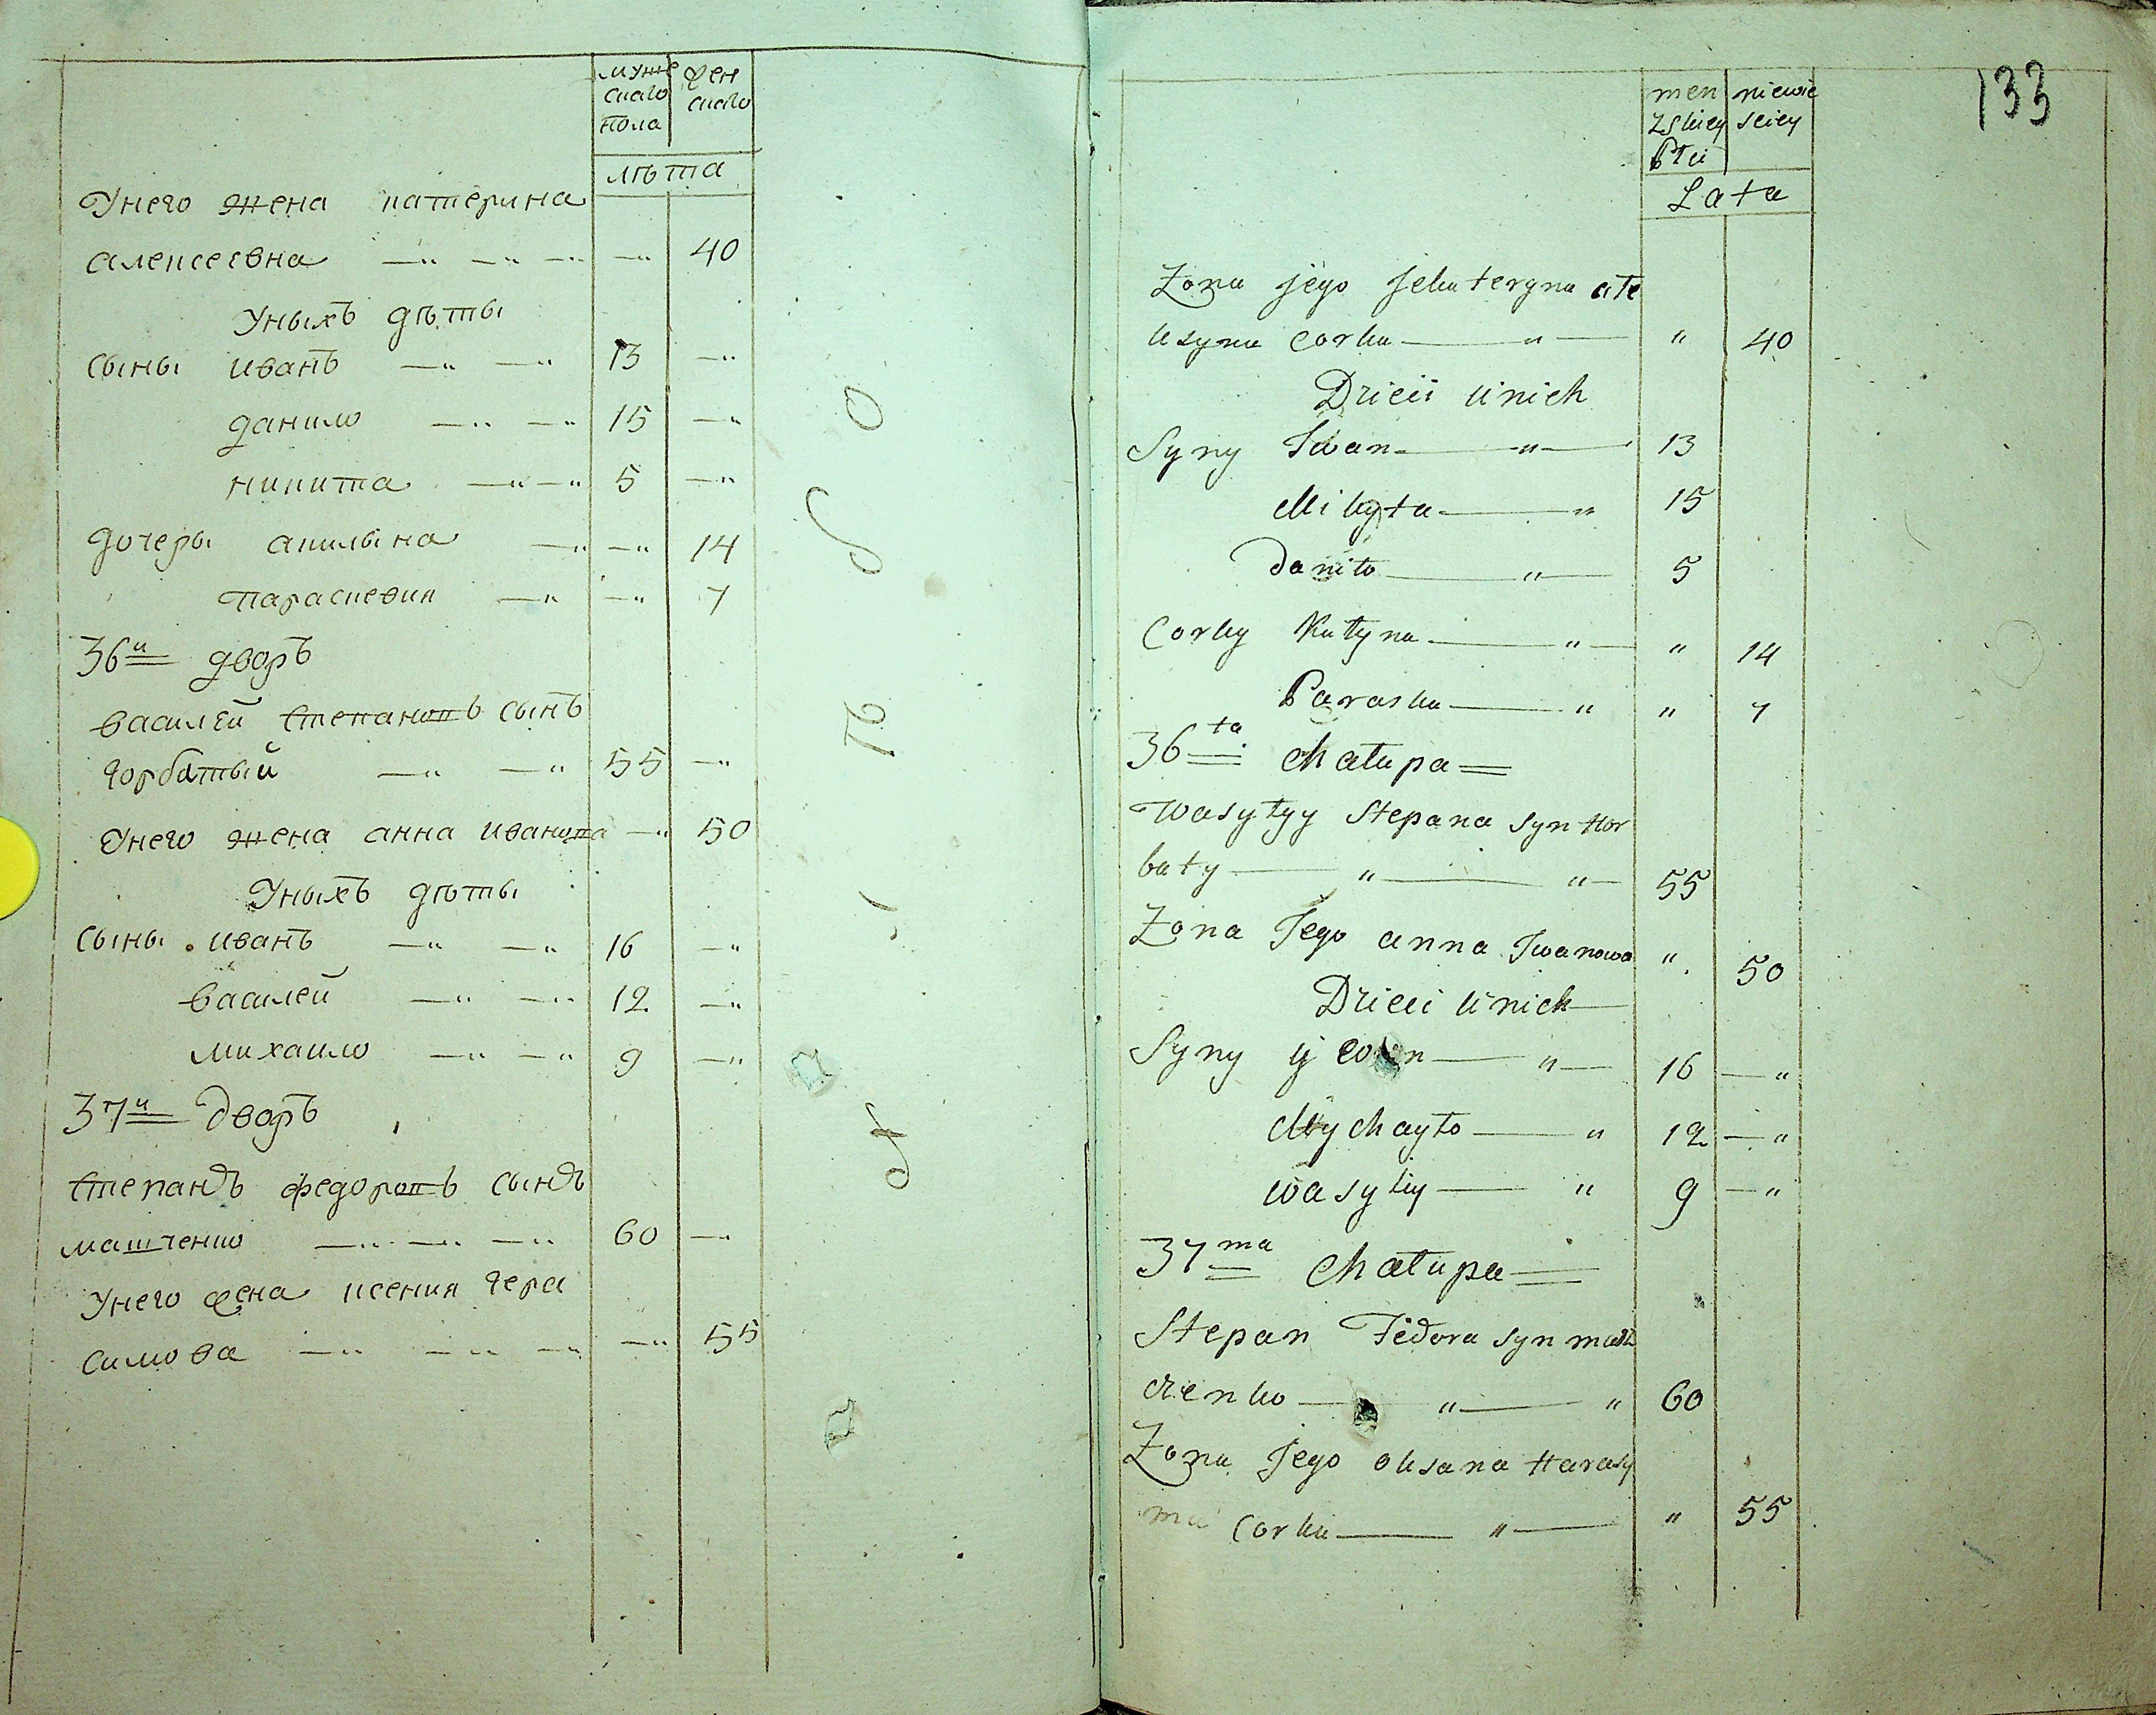 муже
скаго
пола
жен
скаго
лѣта
Унего жена катерина
алексеевна —" —" —" —" 40
Уныхъ дѣты
сыны иванъ —" —" 13 —"
данило —" —" 15 —"
никита —" —" 5 —"
дочеры акилына —" —" 14
параскевия —" —" 7
36й дворъ
василей степановъ сынъ
горбатый —" —" 55 —"
Унего жена анна иванова —" 50
Уныхъ дѣты
сыны иванъ —" —" 16 —"
василей —" —" 12 —"
михаило —" —" 9 —"
37й дворъ
степанъ федоровъ сынъ
машченко —" —" —" 60 —"
Унего жена ксения гера
симова —" —" —" —" 55
133
men
zskiey
Płci
niewie
sciey
Lata
Zona jego Jekateryna ałe
ksyna corka — " — " 40
Dzieci unich
Syny Iwan — " — 13
Mikyta — " 15
Daniło — " — 5
Corky Kulyna — " — " 14
Paraska — " " 7
36ta chałupa =
Wasyłyy Stepana syn Hor
baty — " — " — 55
Zona Jego anna Iwanowa " 50
Dzieci unich —
Syny — " — 16 — "
Mychayło — " 12 — "
wasyliy — " 9 — "
37ma chałupa =
Stepan Fedora syn masz
czenko — " — " 60
Zona Jego oksana Harasy
ma corka — " — " 55